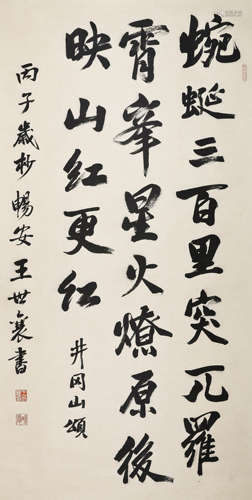 蜿蜒三百里突兀羅
霄峯星火燎原後
映山紅更紅
井岡山頌
丙子歲杪暢安王世襄書